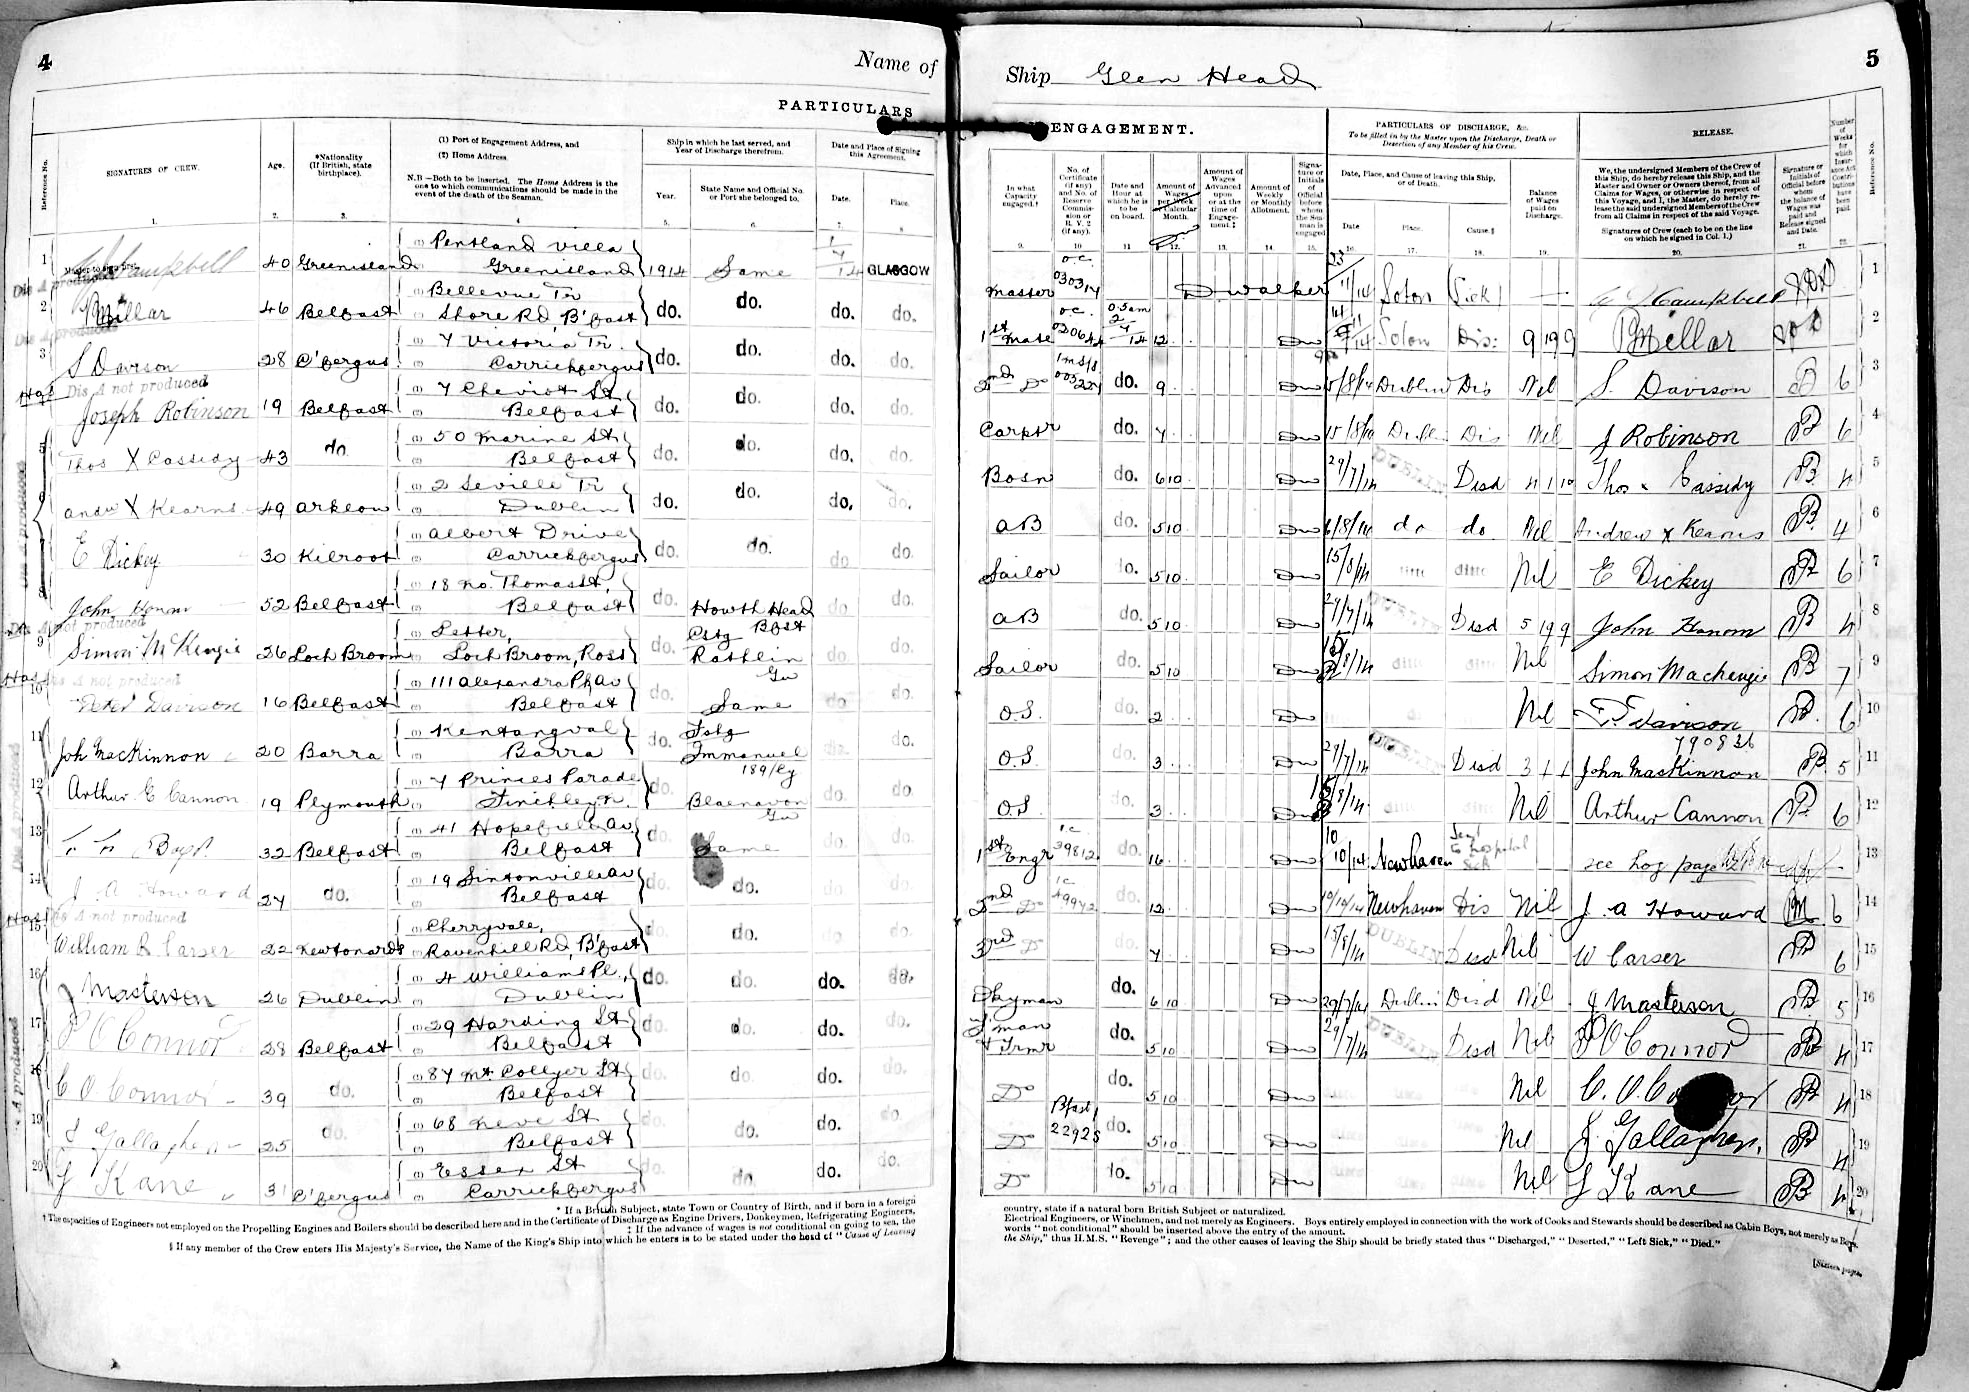 4
Name of
PARTICULARS
Reference No.
SIGNATURES OF CREW.
Age.
*Nationality (If British, state birthplace).
(1) Port of Engagement Address, and
(2) Home Address.
N.B—Both to be inserted. The Home Address is the one to which communications should be made in the event of the death of the Seaman.
Ship in which he last served, and Year of Discharge therefrom.
Year.
State Name and Official No. or Port she belonged to.
Date and Place of Signing this Agreement.
Date.
Place.
1. 2. 3. 4 5. 6. 7. 8
1 Campbell 40 Greenisland Pentland Villa Greenisland 1914 Same GLASGOW
Dis A produced
2 Millar 46 Belfast Bellevue Tr Shore Rd, B'fast do. do. do. do.
Dis A produced
3 S Davison 28 C'fergus 7 Victoria Tr. Carrickfergus do. do. do. do.
Dis A not produced
Joseph Robinson 19 Belfast 7 Cheviot St Belfast do. do. do. do.
5 Thos X Cassidy 43 do. 50 Marine St Belfast do. do. do. do.
6 Andw X Kearns 49 Arklow 2 Seville Tr Dublin do. do. do. do.
E Dickey 30 Kilroot Albert Drive Carrickfergus do. do. do do.
8 John 52 Belfast 18 No. Thomas St, Belfast do. Howth Head Bfst do do.
Dis A not produced
9 Simon McKenzie 26 Loch Broom Letter, Loch Broom, Ross do. Cstg Rathlin Gw do do.
Dis A not produced
10 Peter Davison 16 Belfast 111 Alexandra Pk Av Belfast do. Same do do.
11 Joh MacKinnon 20 Barra Kentangval Barra do. Fstg Immanuel do. do.
12 Arthur E Cannon 19 Plymouth 7 Princes Parade Finchley N. do. Blaenavon do. do.
13 32 Belfast 41 Hopefield Av Belfast do. Same do. do.
14 J A Howard 27 do. 19 Sintonville Av Belfast do. do. do. do.
Dis A not produced
15 William R Carser 22 Newtonards Cherryvale, Ravenhill Rd, B'fast do. do. do. do.
16 J Masterson 26 Dublin 4 Williams Pl., Dublin do. do. do. do.
17 P O Connor 28 Belfast 29 Harding St Belfast do. do. do. do.
18 C O Connor 39 do. 87 Mt. Collyer St Belfast do. do. do. do.
19 J Gallagher 25 do. 68 Belfast do. do. do. do.
20 J Kane 31 C'fergus Essex St Carrickfergus do. do. do. do.
* If a British Subject, state Town or Country of Birth, and if born in a foreign
† The capacities of Engineers not employed on the Propelling Engines and Boilers should be described here and in the Certificate of Discharge as Engine Drivers, Donkeymen, Refrigerating Engineers,
‡ If the advance of wages is not conditional on going to sea, the
§ If any member of the Crew enters His Majesty's Service, the Name of the King's Ship into which he enters is to be stated under the head of "Cause of Leaving
5
Ship Glen Head
ENGAGEMENT.
PARTICULARS OF DISCHARGE, &c.
To be filled in by the Master upon the Discharge, Death or Desertion of any Member of his Crew.
RELEASE.
In what Capacity engaged.†
No. of Certificate (if any) and No. of Reserve Commission or R.V. 2 (if any).
Date and Hour at which he is to be on board.
Amount of Wages per Week or Calendar Month.
Amount of Wages Advanced upon or at the time of Engagement.‡
Amount of Weekly or Monthly Allotment.
Signature or Initials of Official before whom the Seaman is engaged
Date, Place, and Cause of leaving this Ship, or of Death.
Date
Place.
Cause.§
Balance of Wages paid on Discharge.
We, the undersigned Members of the Crew of this Ship, do hereby release this Ship, and the Master and Owner or Owners thereof, from all Claims for Wages, or otherwise in respect of this Voyage, and I, the Master, do hereby release the said undersigned Members of the Crew from all Claims in respect of the said Voyage.
Signatures of Crew (each to be on the line on which he signed in Col. 1.)
Signature or Initials of Official before whom the balance of Wages was paid and Release signed and Date.
Number of Weeks for which Insurance Act Contributions have been paid.
Reference No.
9. 10 11 12. 13. 14. 15. 16. 17. 18. 19. 20. 21. 22.
Master o.c. 030314 D. Walker 23/11/14 Soton Sick — Campbell 1
1st Mate o.c. 0.5am 12 Soton Dis: 9 19 9 Millar 2
2nd Do do. 9 15/8/14 Dublin Dis Nil S. Davison 6 3
Carptr do. 7 15/8/14 Dubli Dis Nil J Robinson 6 4
Bosn do. 6 10 29/7/14 DUBLIN Disd 4 1 10 Thos x Cassidy 4 5
AB do. 5 10 6/8/14 do do. Nil Andrew x Kearns 4 6
Sailor do. 5 10 15/8/14 ditto ditto Nil E Dickey 6 7
AB do. 5 10 29/7/14 DUBLIN Disd 5 19 9 John 4 8
Sailor do. 5 10 15/8/14 ditto ditto Nil Simon Mackenzie 7 9
O.S. do. 2 Nil P. Davison 6 10
790836
O.S. do. 3 29/7/14 DUBLIN Disd John MacKinnon 5 11
O.S. do. 3 15/8/14 ditto Nil Arthur Cannon 6 12
1st Engr 1c 39812 do. 16 10/10/14 Newhaven Sent to hospital Sick see Log page 13
2nd Do 1c 49942 do. 12 10/10/14 Newhaven Dis Nil J. A Howard 6 14
3rd D do. 7 15/8/14 DUBLIN Disd Nil W Carser 6 15
Dkyman do. 6 10 29/7/14 Dublin Disd Nil J Masterson 5 16
F'man & Trmr do. 5 10 29/7/14 DUBLIN Disd Nil P O Connor 4 17
Do do. 5 10 Nil C. O. Connor 4 18
Do Bfast 22925 do. 5 10 Nil J. Gallagher. 4 19
Do do. 5 10 Nil J Kane 4 20
country, state if a natural born British Subject or naturalized.
Electrical Engineers, or Winchmen, and not merely as Engineers. Boys entirely employed in connection with the work of Cooks and Stewards should be described as Cabin Boys, not merely as Boys.
words "not conditional" should be inserted above the entry of the amount.
the Ship," thus H.M.S. "Revenge"; and the other causes of leaving the Ship should be briefly stated thus "Discharged," "Deserted," "Left Sick," "Died."
[Sixteen pages.